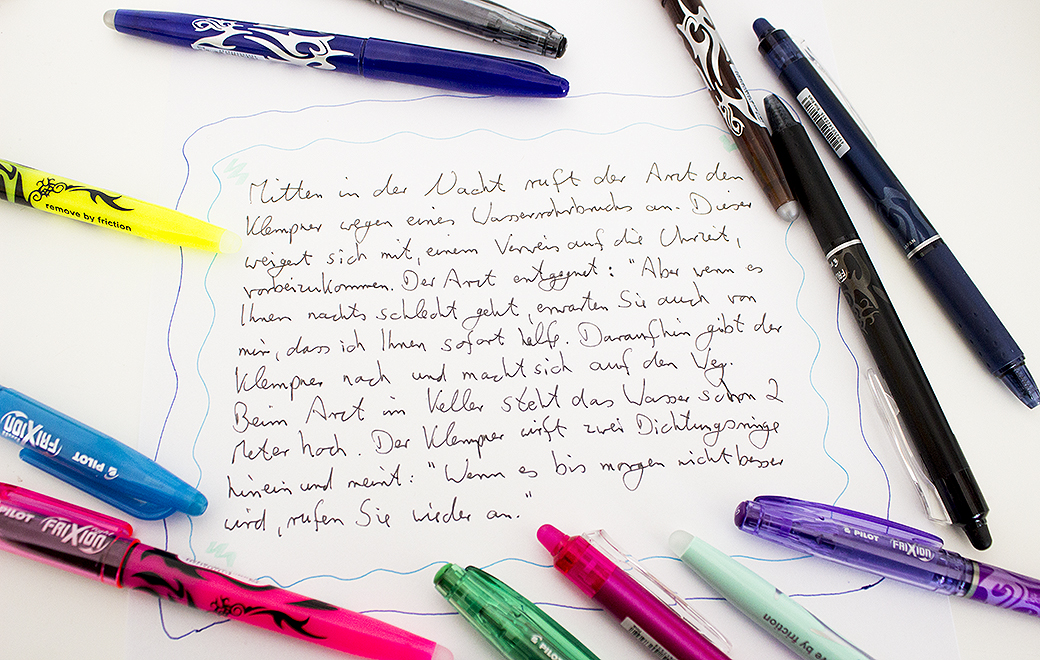 remove by friction
Mitten in der Nacht ruft der Arzt den
Klempner wegen eines Wasserrohrbruchs an. Dieser
weigert sich mit, einem Verweis auf die Uhrzeit,
vorbeizukommen. Der Arzt entgegnet: "Aber wenn es
Ihnen nachts schlecht geht, erwarten Sie auch von
mir, dass ich Ihnen sofort helfe. Daraufhin gibt der
Klempner nach und macht sich auf den Weg.
Beim Arzt im Keller steht das Wasser schon 2
Meter hoch. Der Klempner wirft zwei Dichtungsringe
hinein und meint: "Wenn es bis morgen nicht besser
wird, rufen Sie wieder an."
PILOT FRIXION
PILOT FRIXION
PILOT FRIXION
PILOT
ve by friction
JAPAN